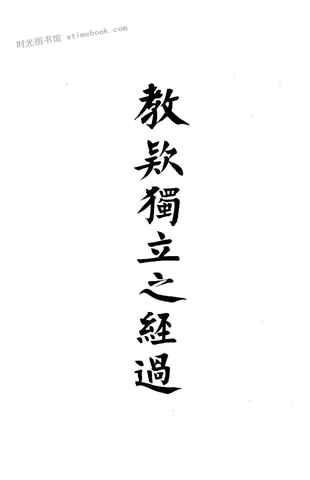 时光图书馆 stimebook.com
教欵獨立之經過